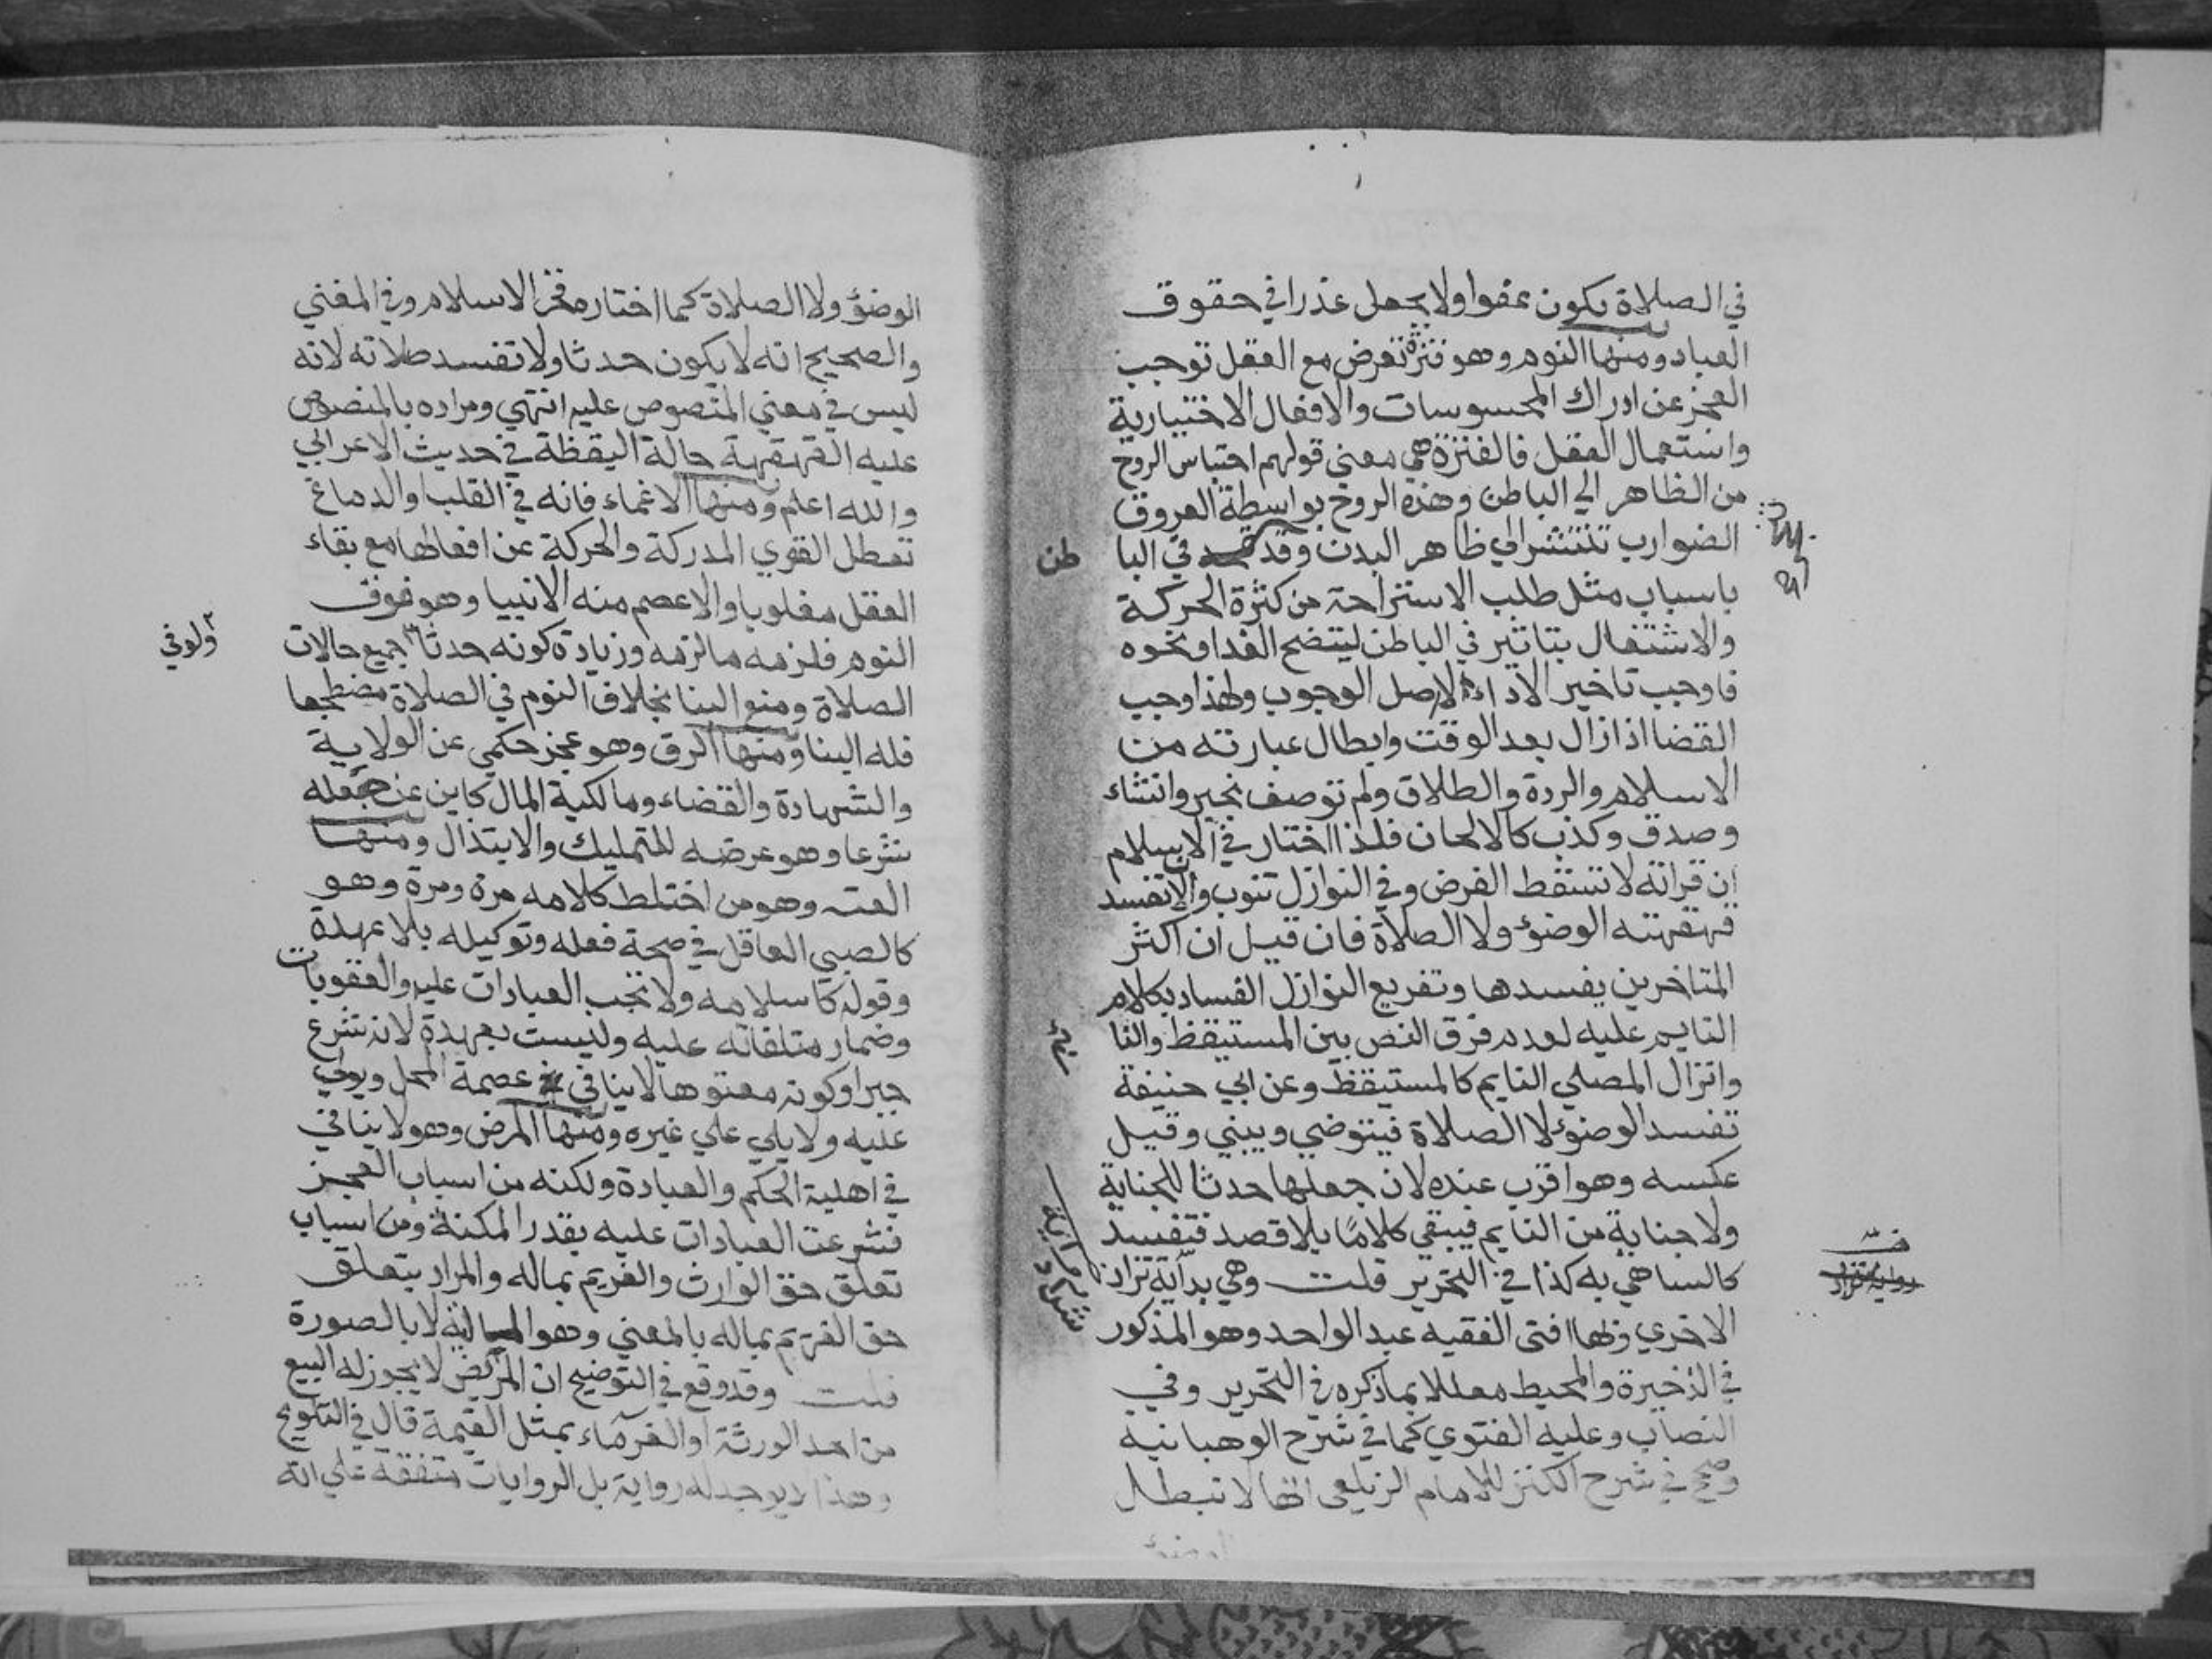 في الصلاة يكون عفوا ولا يجعل عذرا في حقوق
العباد ومنها النوم وهو فترة تعرض مع العقل توجب
العجز عن ادراك المحسوسات والافعال الاختيارية
واستعمال العقل فالفترة هي معني قولهم احتباس الروح
من الظاهر الي الباطن وهذه الروح بواسطة العروق
الضوارب تنتشر الي ظاهر البدن وقد في البا طن
باسباب مثل طلب الاستراحة من كثرة الحركة
والاشتغال بتاثير في الباطن لينضح الغدا ونحوه
فاوجب تاخير الاداء لا اصل الوجوب ولهذا وجب
القضا اذا زال بعد الوقت وابطال عبارته من
الاسلام والردة والطلاق ولم توصف بخبر وانشاء
وصدق وكذب كالالحان فلذا اختار في الاسلام
ان قراته لا تسقط الفرض وفي النوازل تنوب والا تفسد
قهقهته الوضؤ ولا الصلاة فان قيل ان اكثر
المتاخرين يفسدها وتفريع النوازل الفساد بكلام
النايم عليه لعدم فرق النص بين المستيقظ والنا
وانزال المصلي النايم كالمستيقظ وعن ابي حنيفة
تفسد الوضوء لا الصلاة فيتوضي ويبني وقيل
عكسه وهو اقرب عنده لان جعلها حدثا للجناية
ولا جناية من النايم فيبقي كلاما بلا قصد فتفسد
كالساهي به كذا في التحرير قلت وهي بداية تزاد
الاخري وبها افتى الفقيه عبد الواحد وهو المذكور
في الذخيرة والمحيط معللا بما ذكره في التحرير وفي
النصاب وعليه الفتوي كما في شرح الوهبانية
وصحح في شرح الكنز للامام الزيلعي انها لا تبطل
الوضؤ
الوضؤ ولا الصلاة كما اختاره فخر الاسلام وفي المغني
والصحيح انه لا يكون حدثا ولا تفسد صلاته لانه
ليس في معني المنصوص عليه انتهي ومراده بالمنصوص
عليه القهقهة حالة اليقظة في حديث الاعرابي
والله اعلم ومنها الاغماء فانه في القلب او الدماغ
تعطل القوي المدركة والحركة عن افعالها مع بقاء
العقل مغلوبا والا عصم منه الانبيا وهو فوق
النوم فلزمه مالزمه وزيادة كونه حدثا جميع حالات
ولو في
الصلاة ومنع البنا بخلاف النوم في الصلاة مضطجعا
فله البنا ومنها الرق وهو عجز حكمي عن الولاية
والشهادة والقضاء ومالكية المال كاين عن جعله
شرعا وهو عرضه للتمليك والابتذال ومنها
العته وهو من اختلط كلامه مرة ومرة وهو
كالصبي العاقل في صحة فعله وتوكيله بلا عهدة
وقوله كاسلامه ولا تجب العبادات عليه والعقوبات
وضمار متلفاته عليه وليست بعهدة لانه شرع
جبرا وكونه معتوها لا ينافي عصمة المحل ويولي
عليه ولا يلي علي غيره ومنها المرض وهو لا ينافي
في اهلية الحكم والعبادة ولكنه من اسباب العجز
فشرعت العبادات عليه بقدر المكنة ومن اسباب
تعلق حق الوارث والغريم بماله والمراد بتعلق
حق الغريم بماله بالمعني وهو المالية لا بالصورة
قلت وقد وقع في التوضيح ان المريض لا يجوز له البيع
من احد الورثة او الغرماء بمثل القيمة قال في التلويح
وهذا لا يوجد له رواية بل الروايات متفقة علي انه